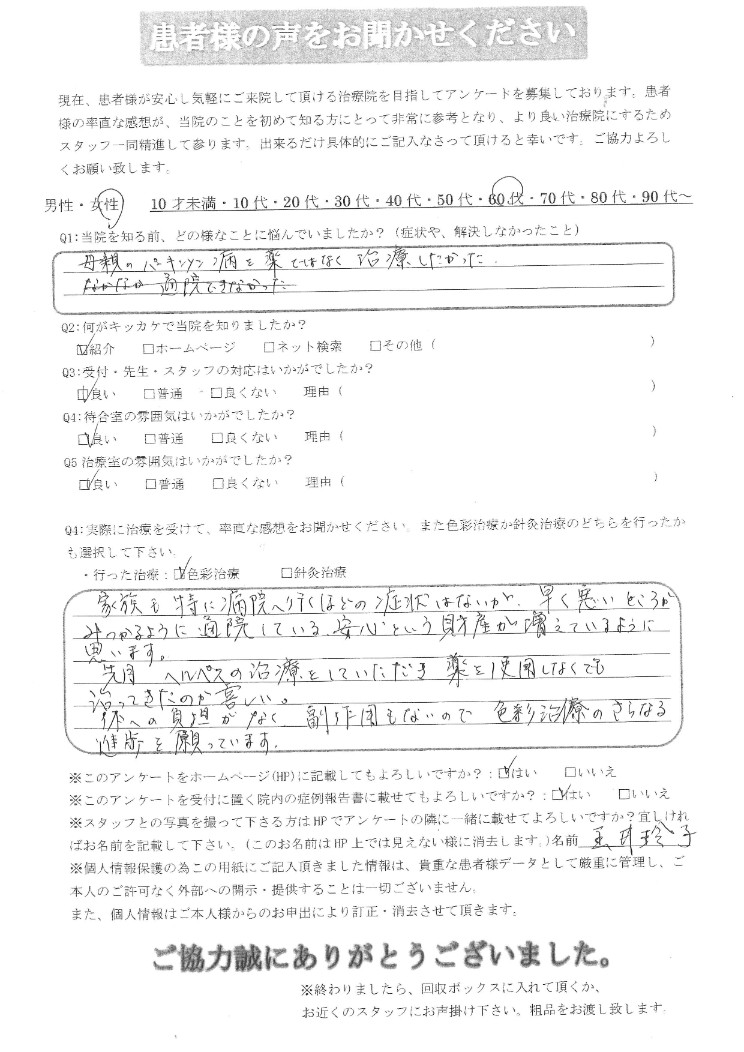 患者様の声をお聞かせください
現在、患者様が安心し気軽にご来院して頂ける治療院を目指してアンケートを募集しております。患者
様の率直な感想が、当院のことを初めて知る方にとって非常に参考となり、より良い治療院にするため
スタッフ一同精進して参ります。出来るだけ具体的にご記入なさって頂けると幸いです。ご協力よろし
くお願い致します。
男性・女性　10才未満・10代・20代・30代・40代・50代・60代・70代・80代・90代～
Q1:当院を知る前、どの様なことに悩んでいましたか？（症状や、解決しなかったこと）
母親のパーキンソン病を薬ではなく治療したかった.
なかなか通院できなかった
Q2:何がキッカケで当院を知りましたか？
☑紹介　□ホームページ　□ネット検索　□その他（　）
Q3:受付・先生・スタッフの対応はいかがでしたか？
☑良い　□普通　・□良くない　理由（　）
Q4:待合室の雰囲気はいかがでしたか？
☑良い　□普通　□良くない　理由（　）
Q5治療室の雰囲気はいかがでしたか？
☑良い　□普通　□良くない　理由（　）
Q4:実際に治療を受けて、率直な感想をお聞かせください。また色彩治療か針灸治療のどちらを行ったか
も選択して下さい。
・行った治療：☑色彩治療　□針灸治療
家族も特に病院へ行くほどの症状はないが、早く悪いところが
みつかるように通院している、安心という財産が増えているように
思います。
先月ヘルペスの治療をしていただき薬を使用しなくても
治ってきたのが喜しい。
体への負担がなく副作用もないので色彩治療のさらなる
進歩を願っています.
※このアンケートをホームページ(HP)に記載してもよろしいですか？：☑はい　□いいえ
※このアンケートを受付に置く院内の症例報告書に載せてもよろしいですか？：☑はい　□いいえ
※スタッフとの写真を撮って下さる方はHPでアンケートの隣に一緒に載せてよろしいですか？宜しけれ
ばお名前を記載して下さい。(このお名前はHP上では見えない様に消去します。)名前 玉井玲子
※個人情報保護の為この用紙にご記入頂きました情報は、貴重な患者様データとして厳重に管理し、ご
本人のご許可なく外部への開示・提供することは一切ございません。
また、個人情報はご本人様からのお申出により訂正・消去させて頂きます。
ご協力誠にありがとうございました。
※終わりましたら、回収ボックスに入れて頂くか、
お近くのスタッフにお声掛け下さい。粗品をお渡し致します。